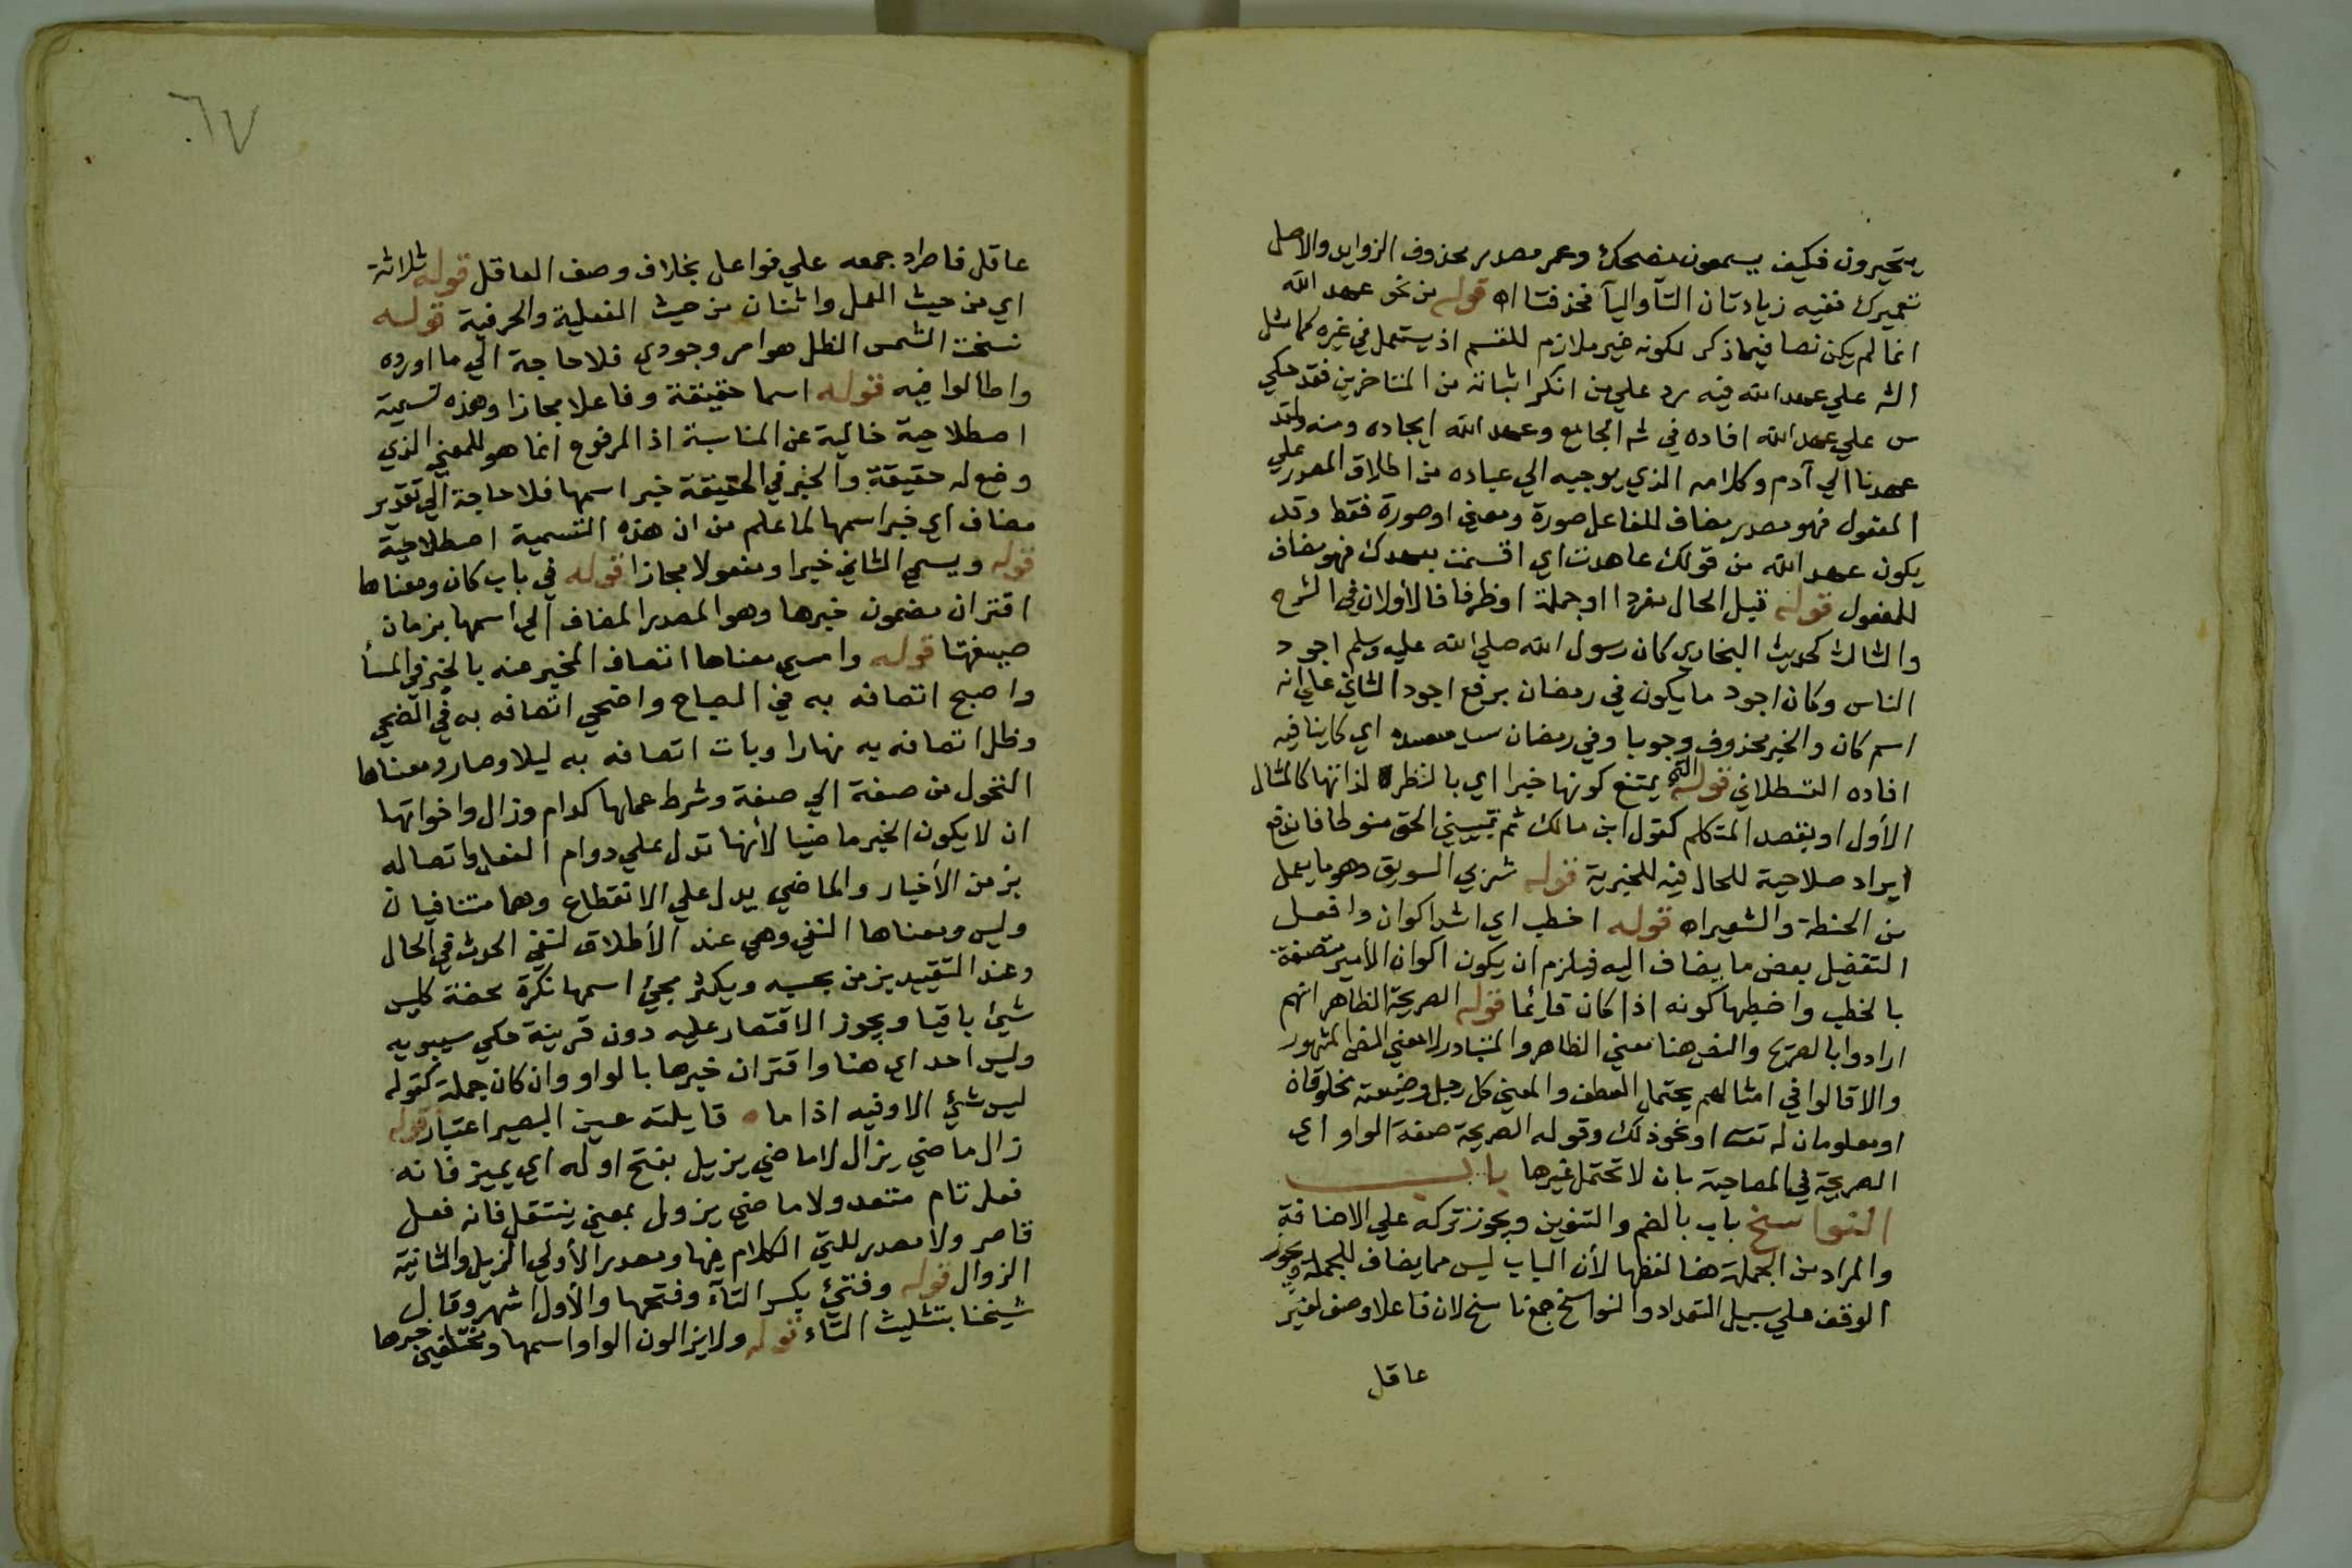 يتحيرون فكيف يسمعون مضحك وعمر مصدر محذوف الزوايد والاصل
تعميرك ففيه زيادتان التآ واليآ فحذفتا اه قوله من نحو عهد الله
انما لم يكن نصا فيما ذكر لكونه غير ملازم للقسم اذ يستعمل في غيره كما مثل
الش علي عهد الله فيه رد علي من انكر اثباته من المتاخرين فقد حكي
س علي عهد الله افاده في ش الجامع وعهد الله ايجاده ومنه ولقد
عهدنا الي آدم وكلامه الذي يوحيه الي عباده من اطلاق المصدر علي
المفعول فهو مصدر مضاف للفاعل صورة ومعني او صورة فقط وقد
يكون عهد الله من قولك عاهدت اي اقسمت بعهدك فهو مضاف
للمفعول قوله قبل الحال مفردا او جملة او ظرفا فالأولان في الشرح
والثالث كحديث البخاري كان رسول الله صلي الله عليه وسلم اجود
الناس وكان اجود ما يكون في رمضان برفع اجود الثاني علي انه
اسم كان والخبر محذوف وجوبا وفي رمضان سد مسده اي كاينا فيه
افاده القسطلاني قوله التي يمتنع كونها خبرا اي بالنظر لذاتها كالمثال
الأول او بقصد المتكلم كقول ابن مالك ثم تبييني الحق منوطا فاندفع
ايراد صلاحية للحال فيه للخبرية قوله شربي السويق وهو ما يعمل
من الحنطة والشعير اه قوله اخطب اي اشد اكوان وافعل
التفضيل بعض ما يضاف اليه فيلزم ان يكون اكوان الأمير متصفة
بالخطب واخطبها كونه اذا كان قايما قوله الصريحة الظاهر انهم
ارادوا بالصريح والنص هنا معني الظاهر والمتبادر لا معني النص المشهور
والا قالوا في امثالهم يحتمل العطف والمعني كل رجل وضيعته مخلوقان
او معلومان له تعـ او نحو ذلك وقوله الصريحة صفة الواو اي
الصريحة في المصاحبة بان لا تحتمل غيرها باب
النواسخ باب بالضم والتنوين ويجوز تركه علي الاضافة
والمراد من الجملة هنا لفظها لأن الباب ليس مما يضاف للجملة ويجوز
الوقف علي سبيل التعداد والنواسخ جمع ناسخ لان فاعلا وصف لغير
عاقل
٦٧
عاقل فاطرد جمعه علي فواعل بخلاف وصف العاقل قوله ثلاثة
اي من حيث العمل واثنان من حيث الفعلية والحرفية قوله
نسخت الشمس الظل هو امر وجودي فلا حاجة الي ما اورده
واطالوا فيه قوله اسما حقيقة وفاعلا مجازا وهذه تسمية
اصطلاحية خالية عن المناسبة اذ المرفوع انما هو للمعني الذي
وضع له حقيقة والخبر في الحقيقة خبر اسمها فلا حاجة الي تقدير
مضاف اي خبر اسمها لما علم من ان هذه التسمية اصطلاحية
قوله ويسمي الثاني خبرا ومفعولا مجازا قوله في باب كان ومعناها
اقتران مضمون خبرها وهو المصدر المضاف الي اسمها بزمان
صيغتها قوله وامسي معناها اتصاف المخبر عنه بالخبر في المسآ
واصبح اتصافه به في الصباح واضحي اتصافه به في الضحي
وظل اتصافه به نهارا وبات اتصافه به ليلا وصار ومعناها
التحول من صفة الي صفة وشرط عملها كدام وزال واخواتها
ان لا يكون الخبر ماضيا لأنها تدل علي دوام الفعل واتصاله
بزمن الأخبار والماضي يدل علي الانقطاع وهما متنافيان
وليس ومعناها النفي وهي عند الأطلاق لنفي الحدث في الحال
وعند التقييد بزمن بحسبه ويكثر مجيئ اسمها نكرة محضة كليس
شيئ باقيا ويجوز الاقتصار عليه دون قرينة حكي سيبويه
وليس احد اي هنا واقتران خبرها بالواو وان كان جملة كقوله
ليس شئ الا وفيه اذا ما ه قابلته عين البصير اعتبار قوله
زال ماضي يزال لا ماضي يزيل بفتح اوله اي يميز فانه
فعل تام متعد ولا ماضي يزول بمعني ينتقل فانه فعل
قاصر ولا مصدر للتي الكلام فيها ومصدر الأولي الزيل والثانية
الزوال قوله وفتئ بكسر التآء وفتحها والأول اشهر وقال
شيخنا بتثليث التاء قوله ولا يزالون الواو اسمها ومختلفين خبرها